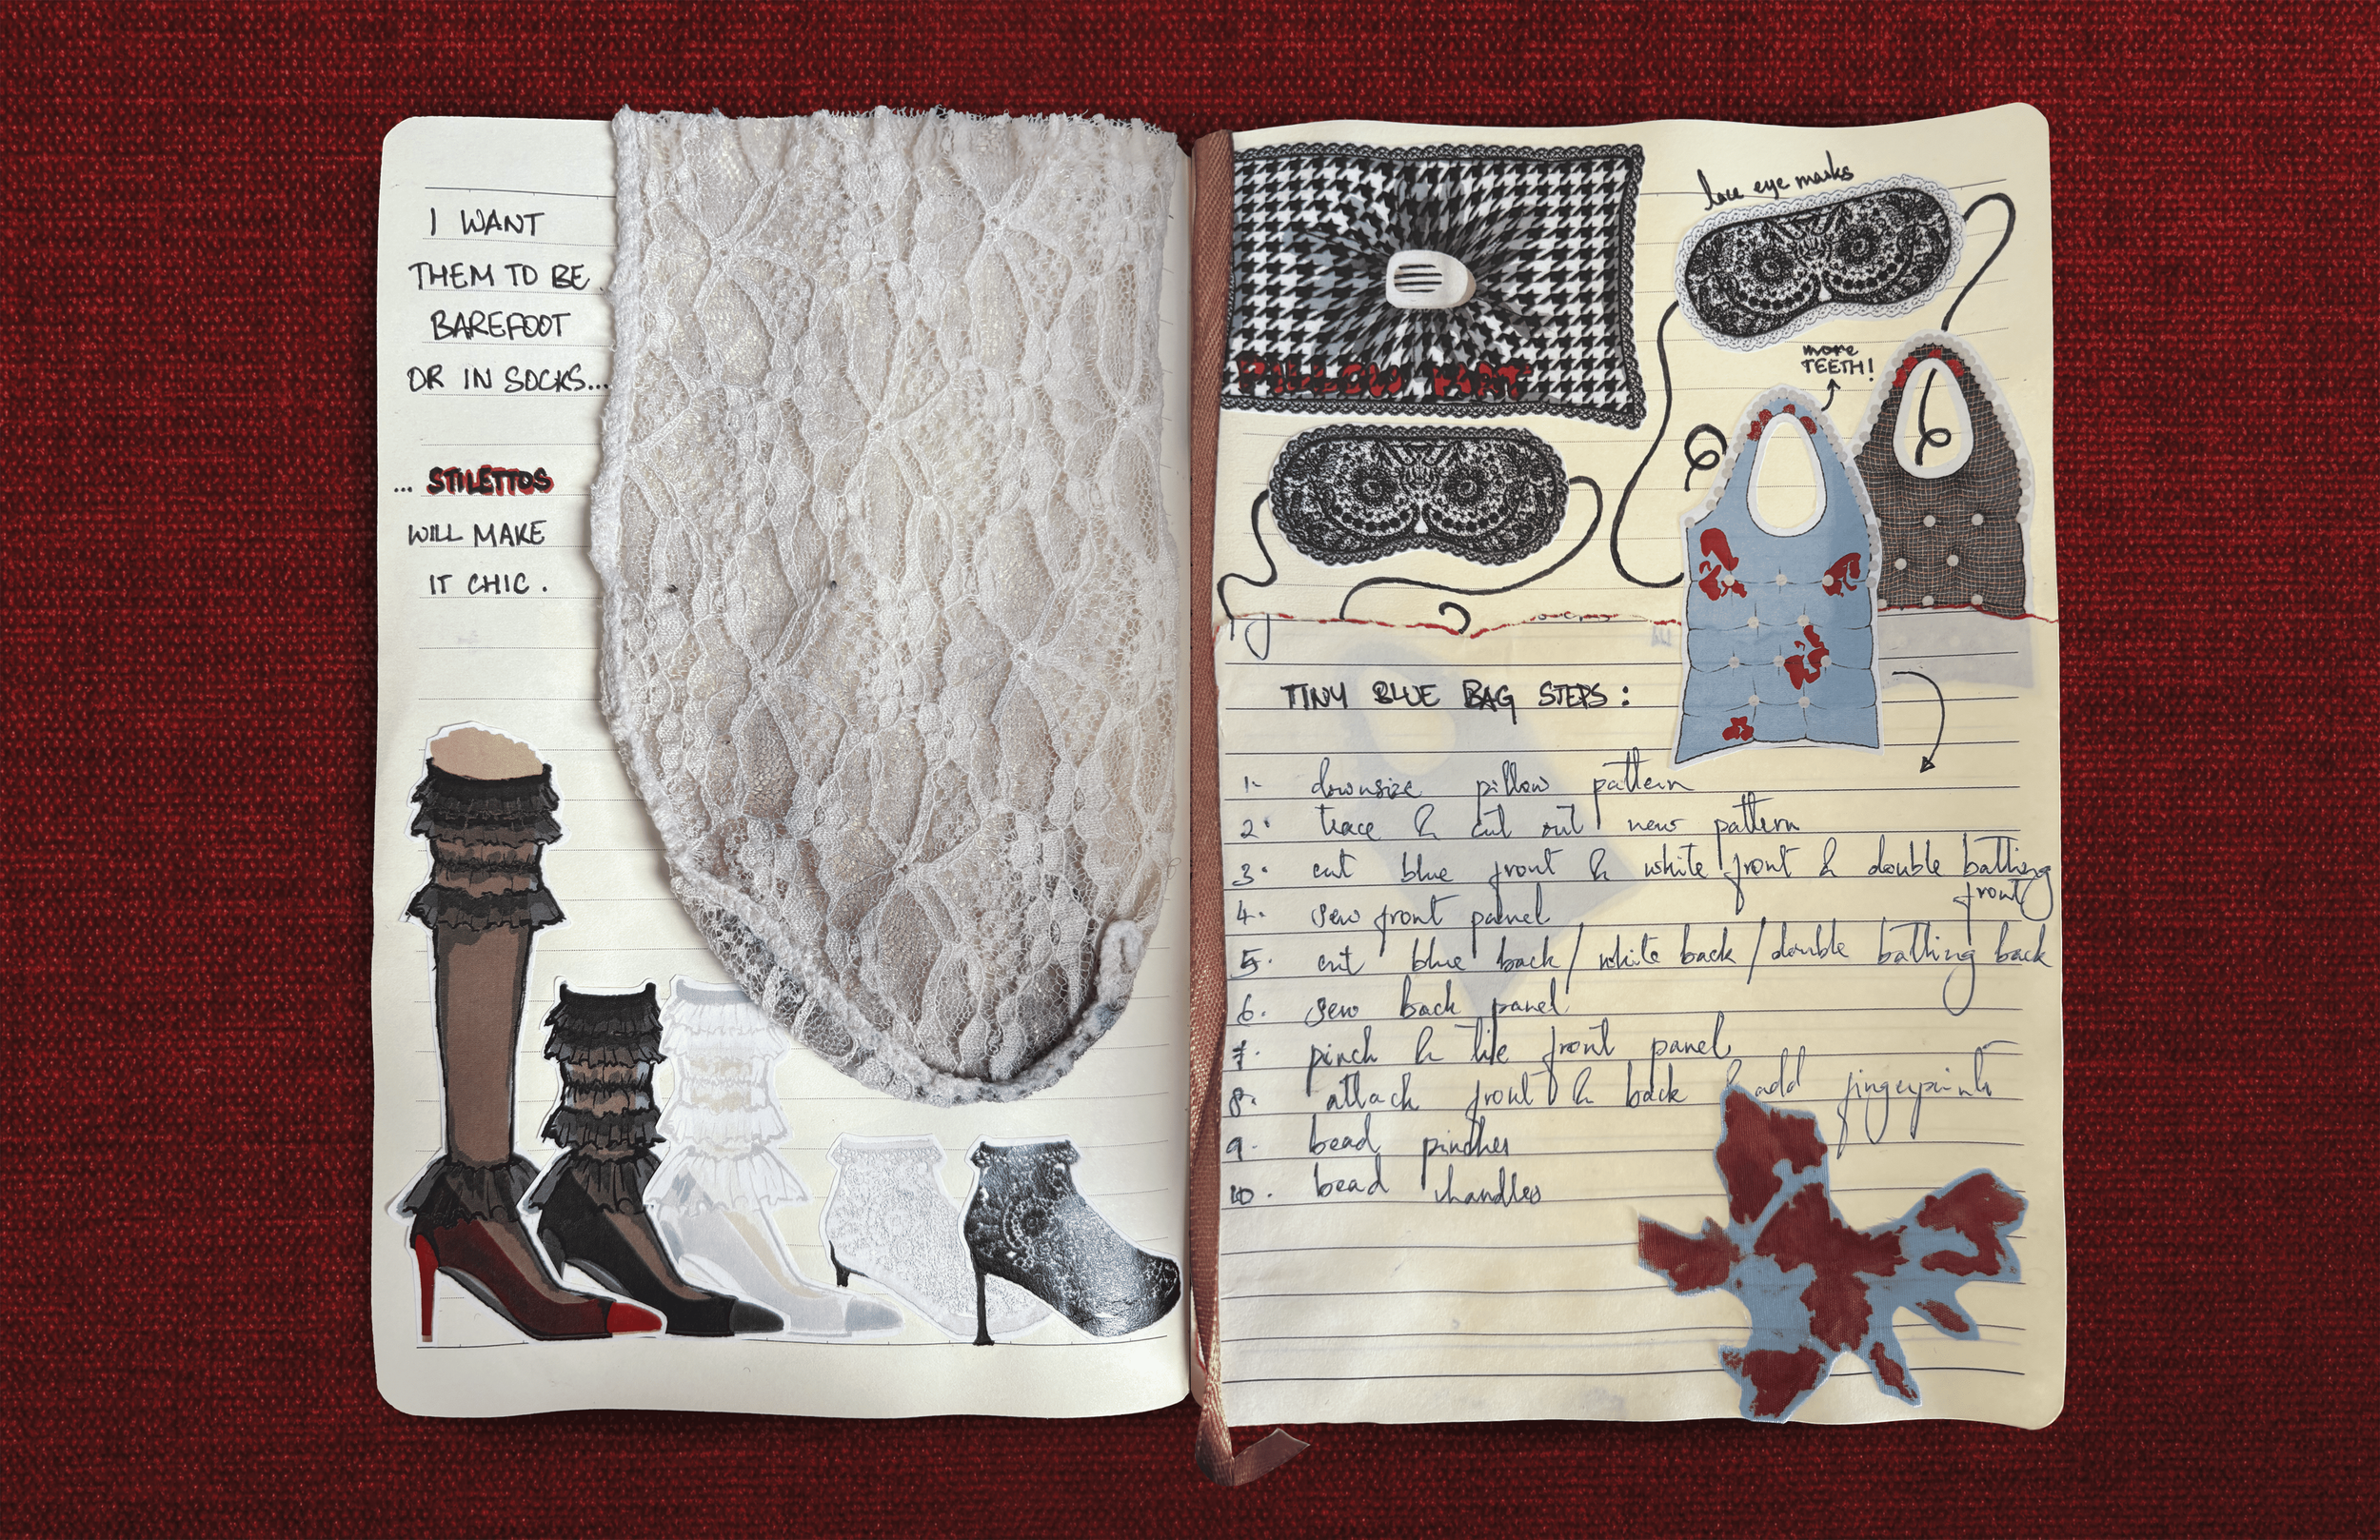 I WANT
THEM TO BE
BAREFOOT
OR IN SOCKS...
... STILETTOS
WILL MAKE
IT CHIC.
lace eye masks
more
TEETH!
TINY BLUE BAG STEPS:
1. downsize pillow pattern
2. trace & cut out new pattern
3. cut blue front & white front & double batting
front
4. sew front panel
5. cut blue back/white back/double batting back
6. sew back panel
7. pinch & tile front panel
8. attach front & back & add fingerprints
9. bead pinches
10. bead handles